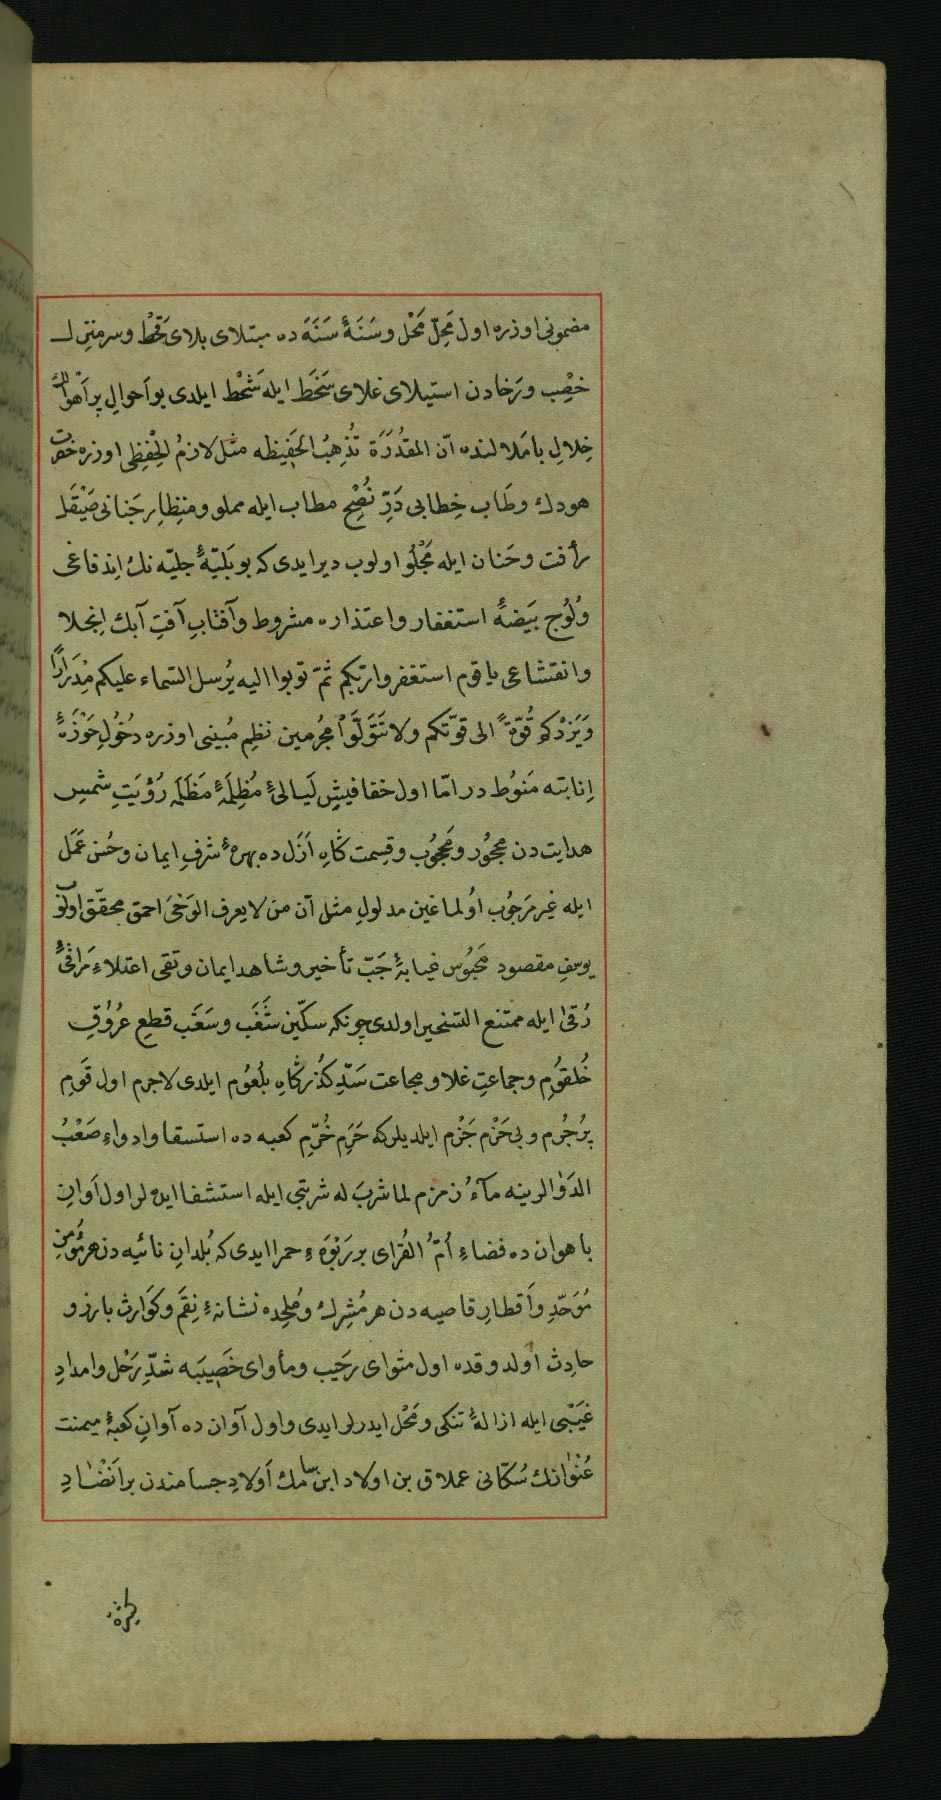 مضمونی اوزره اول مَحِلّ مَحْل وسَنَهٔ سَنَهَ ده مبتلای بلای قَحْط وسرمنزل
خِصْب ورَخادن استیلای غلای سَخَط ایله شَحْط ایلدی بو اَحوالِ پر اَهْوالك
خِلالِ با مَلالنده انّ المقدُرَةَ تُذهِبُ الحَفِیظه مثل لازمُ الحِفظی اوزره حضرت
هودك وطَاب خِطابی دَرِّ نُصْحِ مطاب ایله مملو ومنظارِ جَنانی صَیْقَل
رأفت وحَنان ایله مَجْلُو اولوب دیر ایدی که بو بَلیّهٔ جلیّه نك اِندفاعی
وُلُوجِ بَیضهٔ استغفار واعتذاره مشروط وآفتابِ آفتِ آبك اِنجلا
وانقشاعی یا قوم استغفروا ربّکم ثمّ توبوا الیه یُرسل السّماء علیکم مِدرارًا
وَیَزِدْکم قُوّةً الی قوّتکم ولا تَتَوَلَّوْا مجُرمین نظمِ مُبینی اوزره دُخُولِ حَوْزَهٔ
اِنابته مَنوُط در امّا اول خفافیشِ لَیالیٔ مُظلِمَهٔ مَظلَمَه رُؤْیَتِ شمسِ
هدایت دن مهجُور ومَحجُوب وقِسمت کاهِ اَزَل ده بهرهٔ شرفِ ایمان وحُسن عَمَل
ایله غیر مَرجُوب اُولماغین مدلولِ مثل انّ من لا یعرف الوَحیَ احمق محقّق اولوب
یوسفِ مقصود مَحبُوسِ غیابهٔ جَبّ تأخیر وشاهد ایمان وتقی اعتلاءِ مَراقیٔ
رُقیٰ ایله ممتنع التسخیر اولدی چونکه سکّین شَغَب وسَغَب قطعِ عُرُوُقِ
حُلقُومِ وجماعتِ غلا ومجاعت سَدِّ کُذرکاهِ بُلعُوُم ایلدی لاجرم اول قَومِ
پرُ جُرم وبی حَزْم جَزْم ایلدیلر که حَرَمِ خُرّمِ کعبه ده استسقا وادواءِ صَعْبُ
الدَوٰالرینه مآءُ زمزم لما شربَ له شربتی ایله استشفا ایده لر اول اَوانِ
با هوان ده فضاءِ اُمُّ القُرٰی بر رَبْوَهءِ حمرا ایدی که بُلدانِ نائیه دن هر مُؤمنِ
مُوَحّدِ واَقطارِ قاصیه دن هر مُشرِك ومُلحِده نشانهءِ نِقَم وکَوارث بارز و
حادِث اولدوقده اول مثوای رحَیب ومأوای خَصِیبَه شدِّ رَحْل وامدادِ
غیَبْی ایله ازالهٔ تنکی ومَحْل ایدرلر ایدی واول آوان ده آوانِ کعبهٔ میمنت
عُنْوٰانك سُکّانی عملاق بن اولاد ابن سامك اَولادِ جسامندن بر اَنْضَادِ